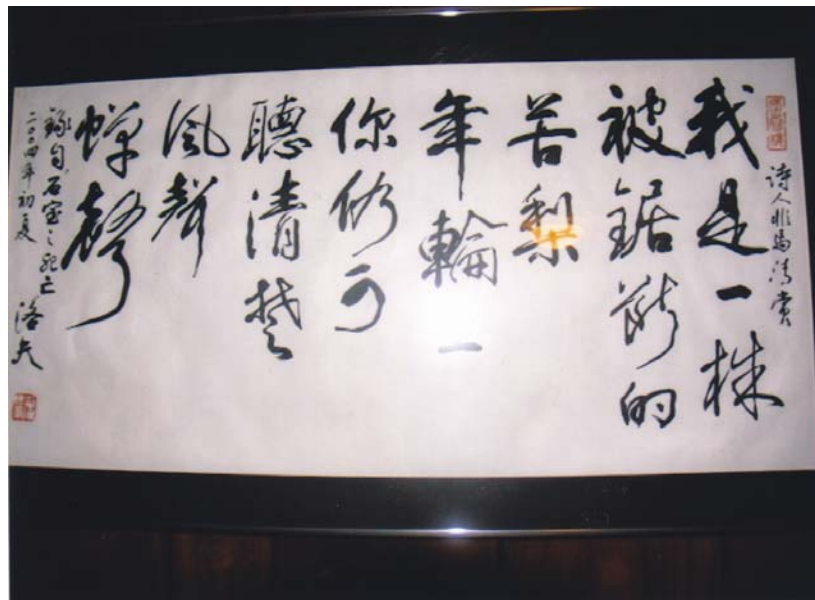 詩人非馬清賞
我是一株
被鋸斷的
苦梨
年輪
你仍可
聽清楚
風聲
蟬聲
錄自石室之死亡
二〇〇四年初夏 洛夫